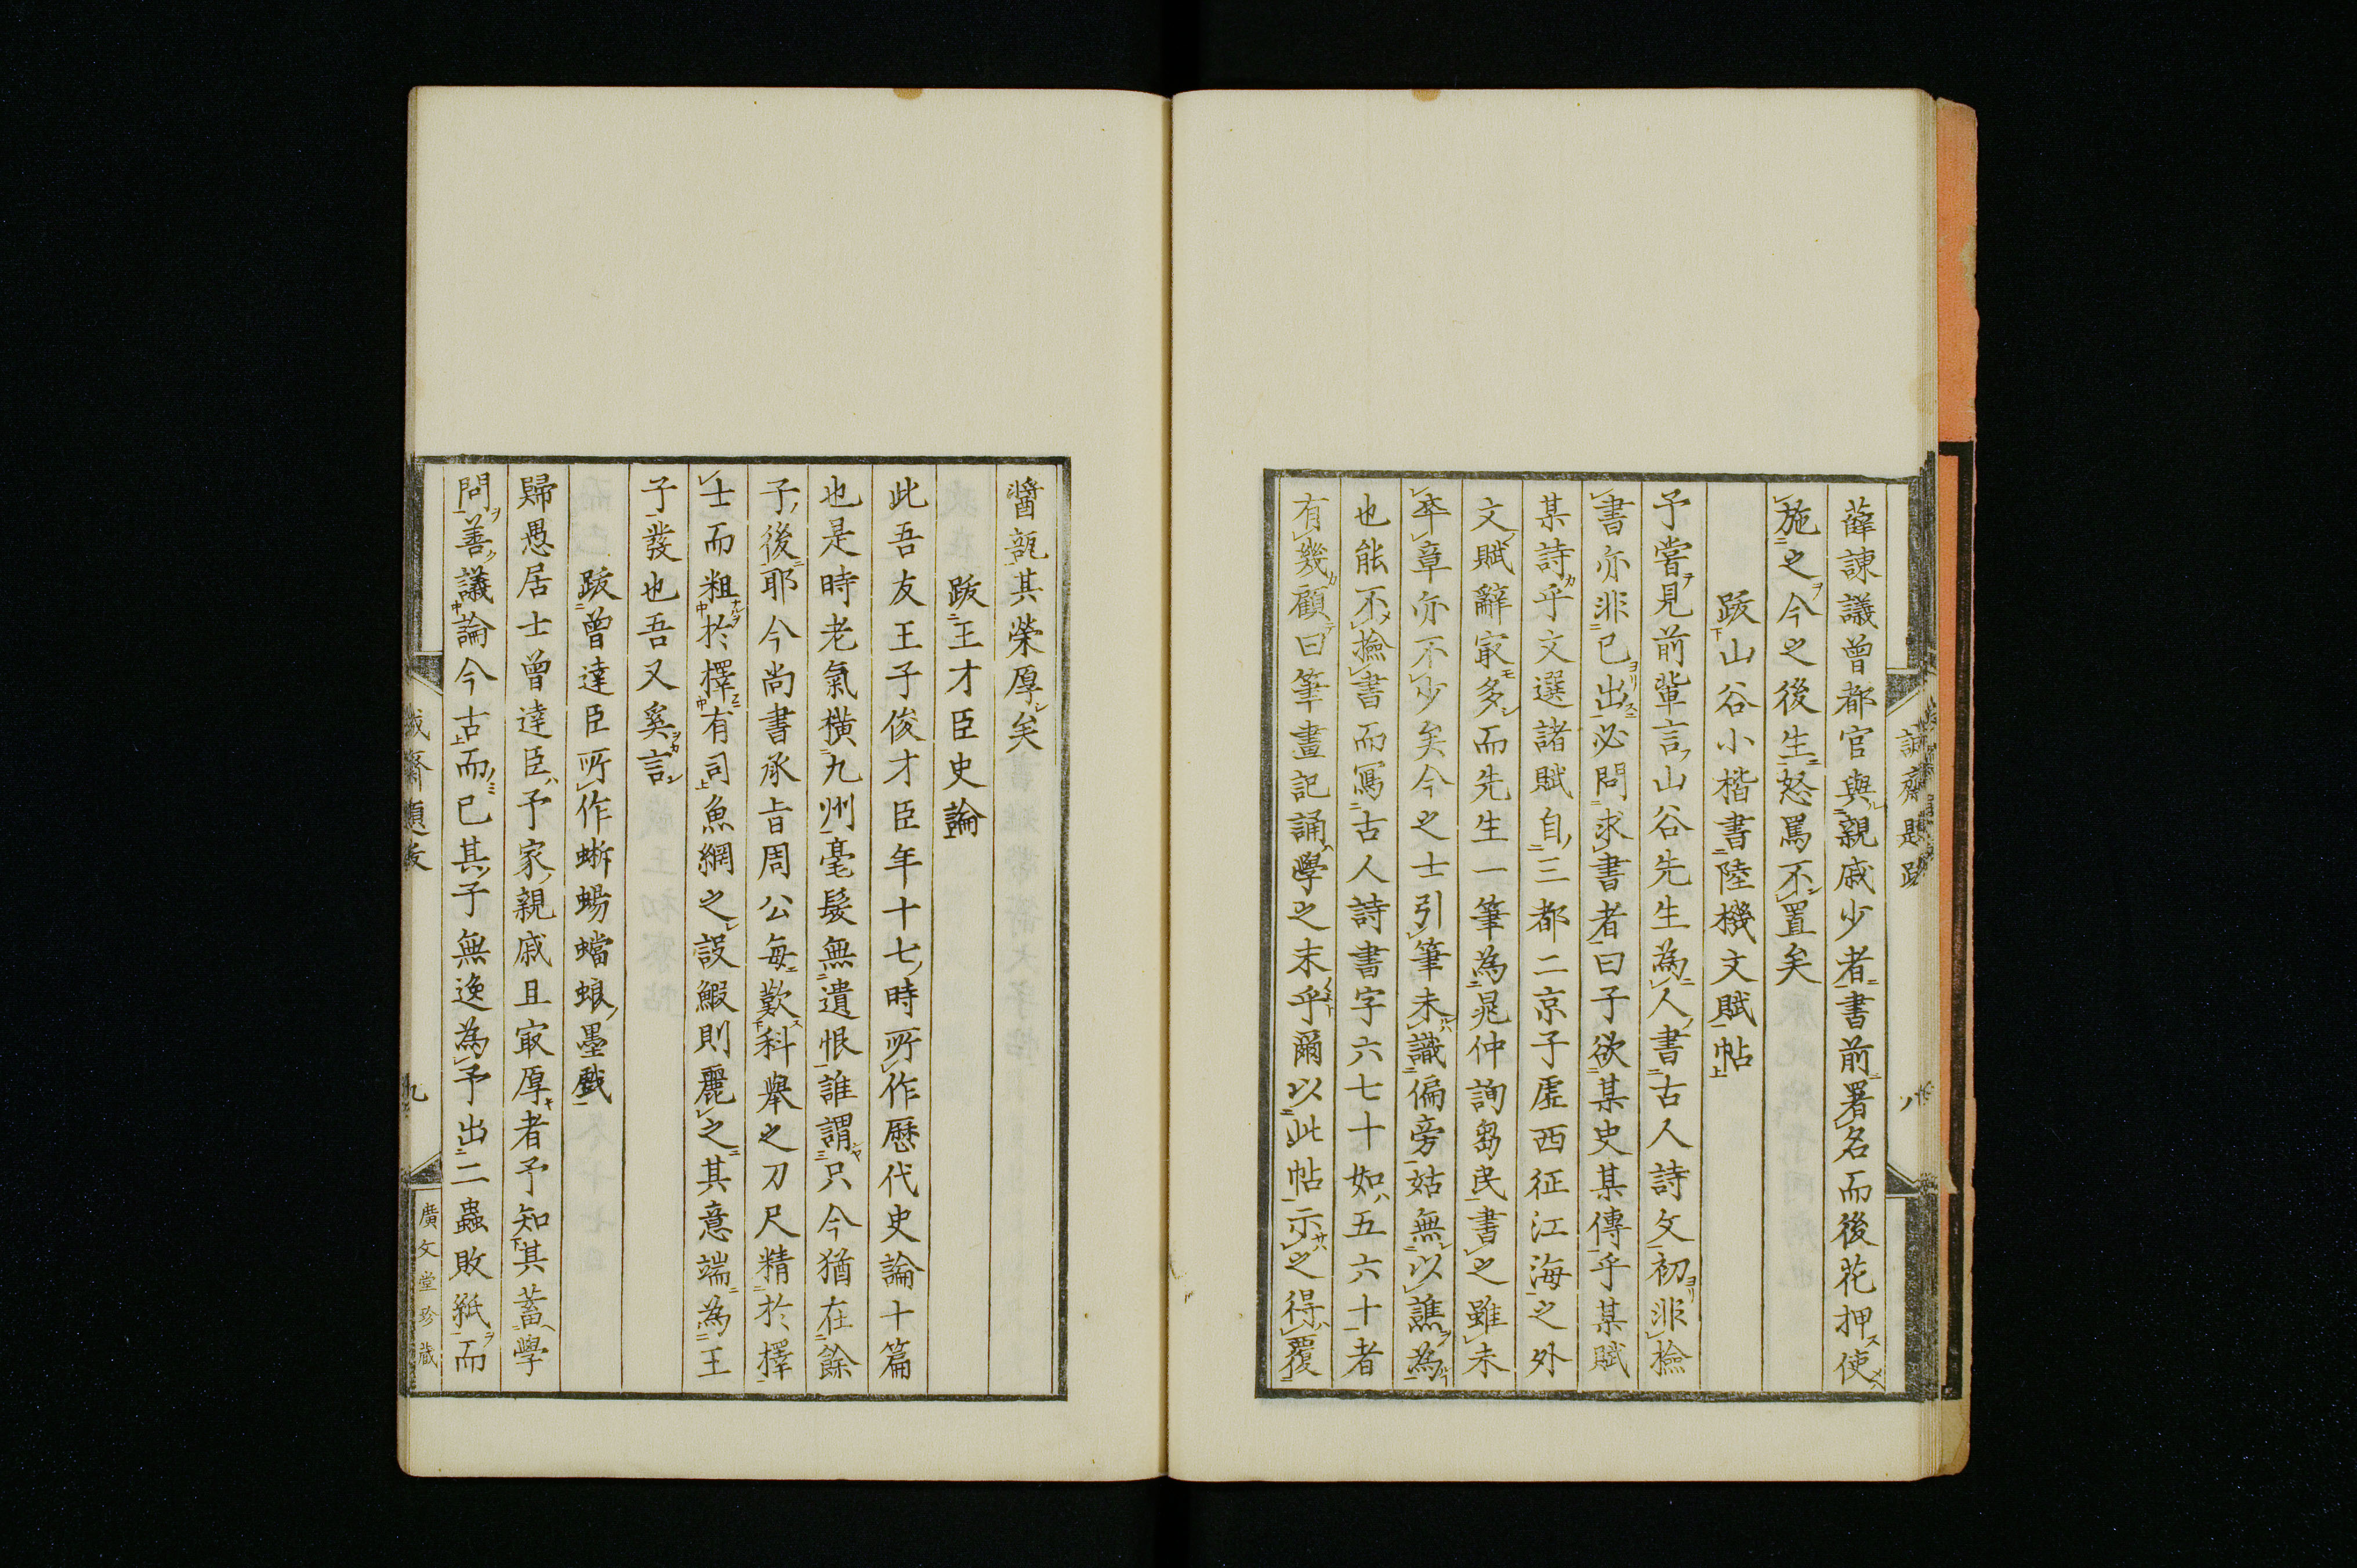 薛諫議曾都官與親戚少者書前署名而後花押使
施之今之後生怒罵不置矣
跋山谷小楷書陸機文賦帖
予嘗見前輩言山谷先生為人書古人詩文初非撿
書亦非已出必問求書者曰子欲某史某傳乎某賦
某詩乎文選諸賦自三都二京子虛西征江海之外
文賦辭㝡多而先生一筆為晁仲詢芻民書之雖未
卒章亦不少矣今之士引筆未識偏旁姑無以譙為
也能不撿書而寫古人詩書字六七十如五六十者
有幾顧曰筆畫記誦學之末乎爾以此帖示之得覆
醬瓿其榮厚矣
跋王才臣史論
此吾友王子俊才臣年十七時所作歷代史論十篇
也是時老氣橫九州毫髮無遺恨誰謂只今猶在餘
子後耶今尚書承旨周公每歎科舉之刀尺精於擇
士而粗於擇有司魚網之設鰕則麗之其意端為王
子發也吾又奚言
跋曾達臣所作蜥蜴蟷蜋墨戲
歸愚居士曾達臣予家親戚且㝡厚者予知其蓄學
問善議論今古而已其子無逸為予出二蟲敗紙而
誠齋題跋
九
廣文堂珍藏